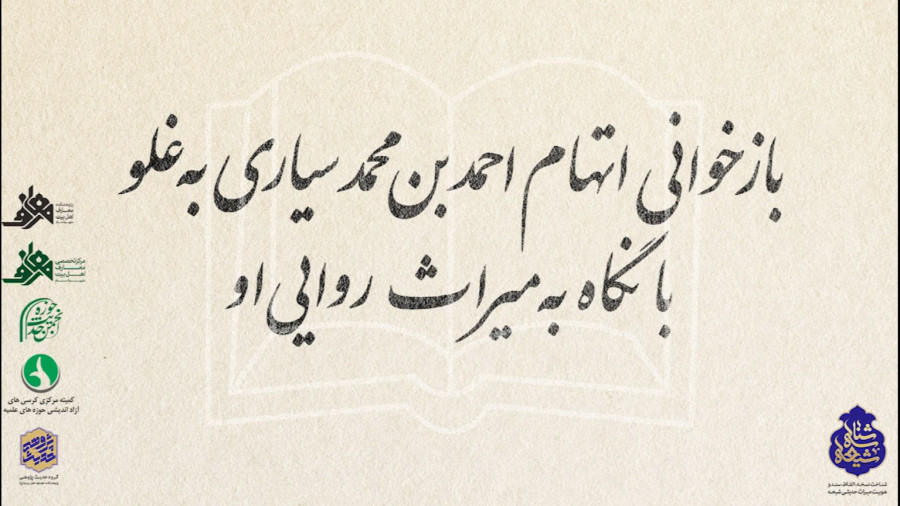 بازخوانی اتهام احمد بن محمد سیاری به غلو
با نگاه به میراث روایی او
مرکز تخصصی
معارف
اهل بیت
انجمن حدیث حوزه
کمیته مرکزی کرسی های
آزاد اندیشی حوزه های علمیه
گروه حدیث پژوهی
شناخت نسخه، الفاظ، سند و
هویت میراث حدیثی شیعه